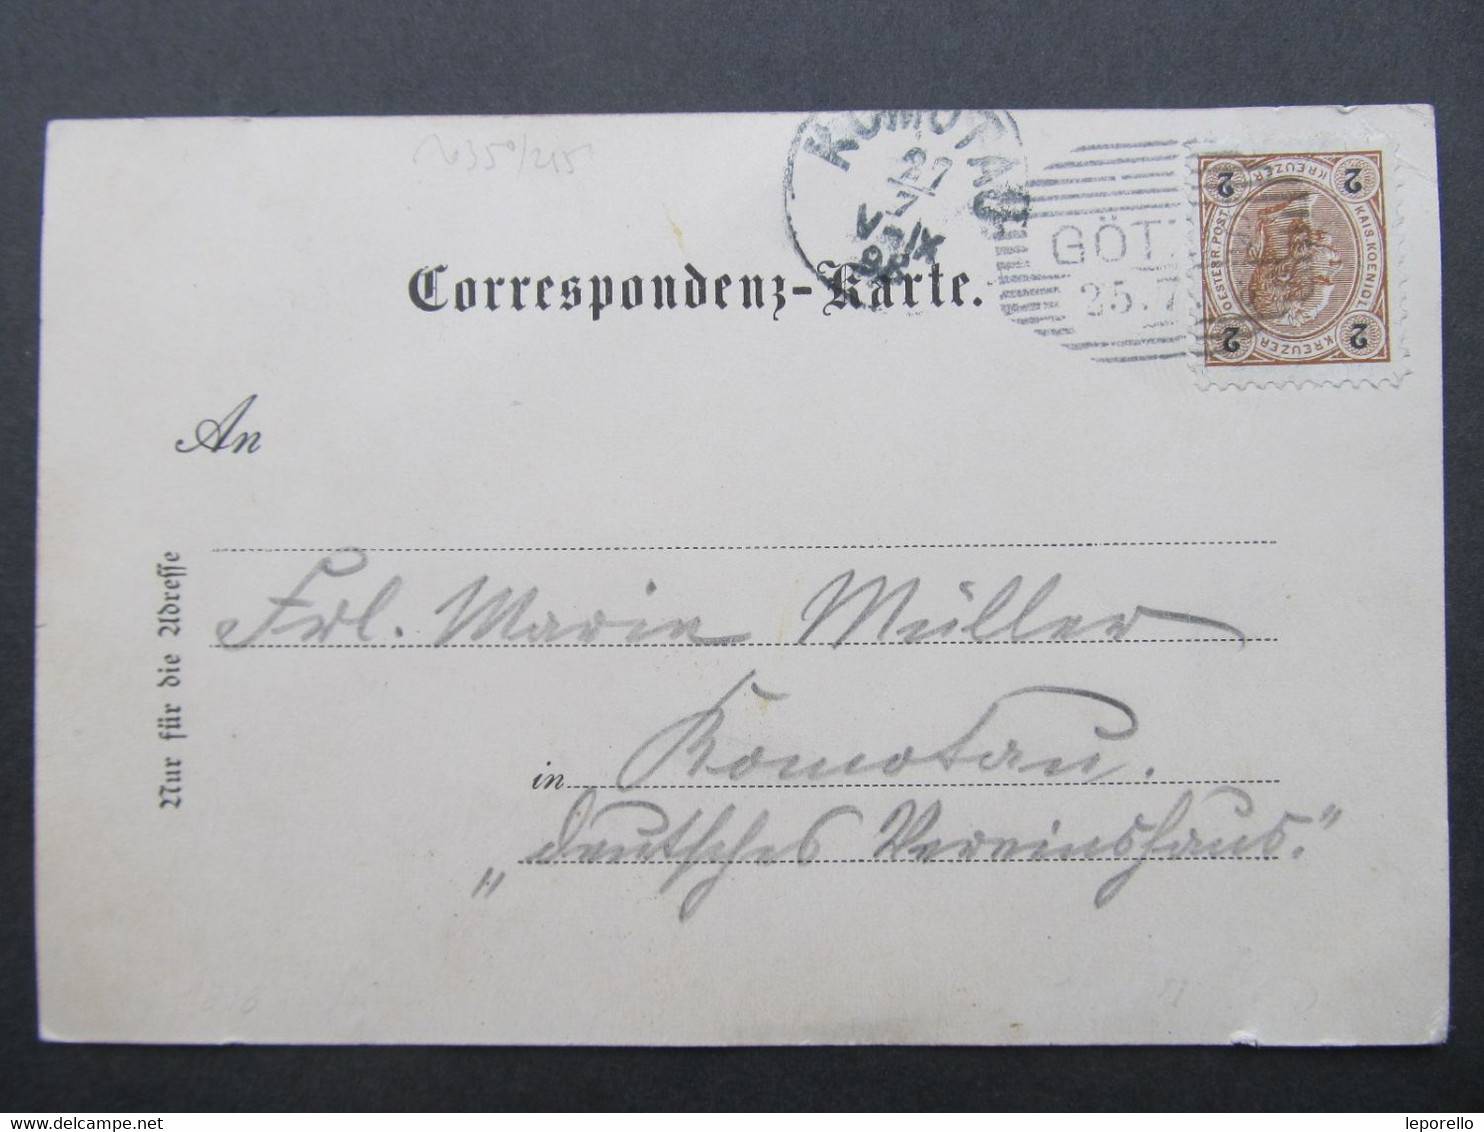 KOMOTAU
27
7
V IX
98
GÖT
25.7
2 KREUZER 2
OESTERR. POST KAIS. KOENIGL.
2 KREUZER 2
Correspondenz-Karte.
An
Nur für die Adresse
Frl. Marie Müller
in Komotau.
„deutsches Vereinshaus."
www.delcampe.net
leporello